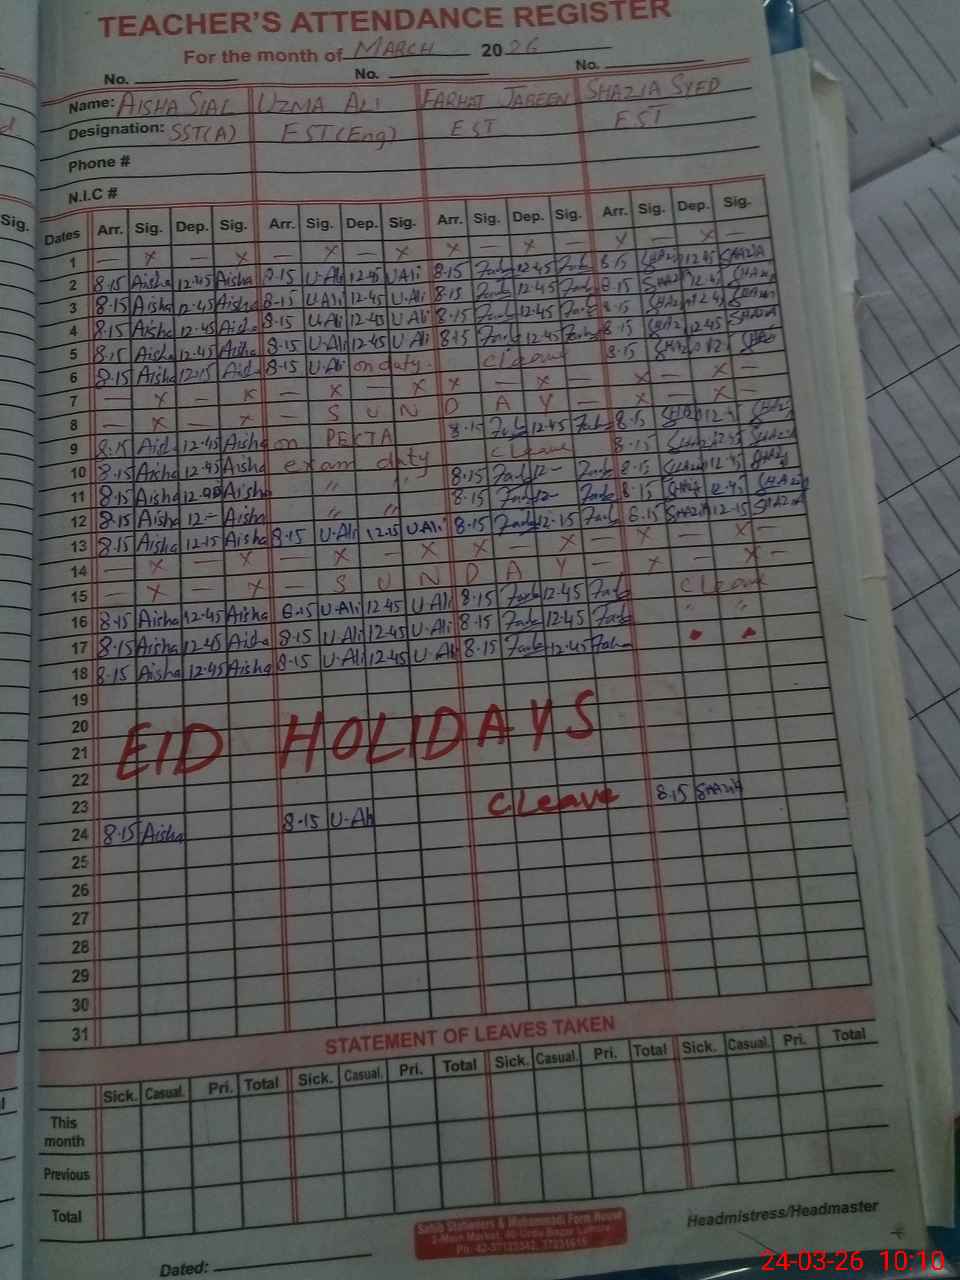 TEACHER'S ATTENDANCE REGISTER
For the month of MARCH 2026
No. No. No.
Name: AISHA SIAL UZMA ALI FARHAT JABEEN SHAZIA SYED
Designation: SST(A) EST(Eng) EST EST
Phone #
N.I.C #
Sig.
Dates Arr. Sig. Dep. Sig. Arr. Sig. Dep. Sig. Arr. Sig. Dep. Sig. Arr. Sig. Dep. Sig.
1 — x — x — x — x x — x — x — x —
2 8.15 Aisha 12.45 Aisha 8.15 U.Ali 12.45 U.Ali 8.15 12.45 8.15 SHAZIA 12.45 SHAZIA
3 8.15 Aisha 12.45 Aisha 8.15 U.Ali 12.45 U.Ali 8.15 12.45 8.15 12.45
4 8.15 Aisha 12.45 Aisha 8.15 U.Ali 12.45 U.Ali 8.15 12.45 8.15 12.45
5 8.15 Aisha 12.45 Aisha 8.15 U.Ali 12.45 U.Ali 8.15 12.45 8.15 12.45
6 8.15 Aisha 12.15 Aisha 8.15 U.Ali on duty. C leave 8.15
7 — x — x — x — x x — x — x — x —
8 — x — x — S U N D A Y — x — x —
9 8.15 Aisha 12.45 Aisha on PECTA 8.15 12.45 8.15
10 8.15 Aisha 12.45 Aisha exam duty C leave 8.15 12.45
11 8.15 Aisha Aisha " " 8.15 12— 8.15 12.45
12 8.15 Aisha 12— Aisha " " 8.15 12— 8.15 12.45
13 8.15 Aisha 12.15 Aisha 8.15 U.Ali 12.15 U.Ali 8.15 12.15 8.15 SHAZIA 12.15 SHAZIA
14 — x — x — x — x x — x — x — x —
15 — x — x — S U N D A Y — x — x —
16 8.15 Aisha 12.45 Aisha 8.15 U.Ali 12.45 U.Ali 8.15 12.45 C leave
17 8.15 Aisha 12.45 Aisha 8.15 U.Ali 12.45 U.Ali 8.15 12.45 " "
18 8.15 Aisha 12.45 Aisha 8.15 U.Ali 12.45 U.Ali 8.15 12.45
19
20
21 EID HOLIDAYS
22
23
24 8.15 Aisha 8.15 U.Ali C Leave 8.15 SHAZIA
25
26
27
28
29
30
31
STATEMENT OF LEAVES TAKEN
Sick. Casual. Pri. Total Sick. Casual. Pri. Total Sick. Casual. Pri. Total Sick. Casual. Pri. Total
This month
Previous
Total
Sahib Stationers & Muhammadi Form House
Headmistress/Headmaster
Dated:
24-03-26 10:10